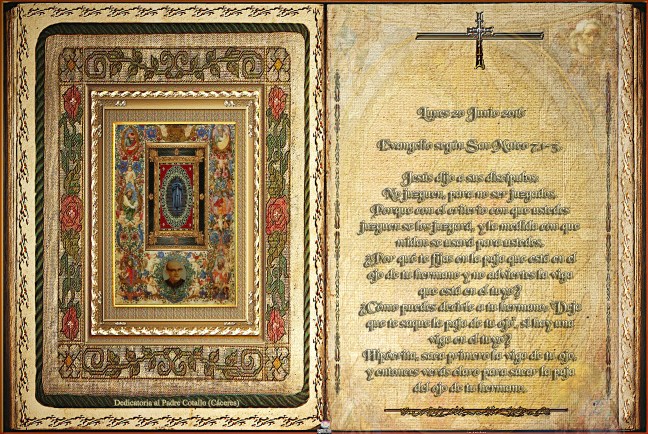 Dedicatoria al Padre Cotallo (Cáceres)
Lunes 20 Junio 2016
Evangelio según San Mateo 7,1-5.
Jesús dijo a sus discípulos:
No juzguen, para no ser juzgados.
Porque con el criterio con que ustedes
juzguen se los juzgará, y la medida con que
midan se usará para ustedes.
¿Por qué te fijas en la paja que está en el
ojo de tu hermano y no adviertes la viga
que está en el tuyo?
¿Cómo puedes decirle a tu hermano: 'Deja
que te saque la paja de tu ojo', si hay una
viga en el tuyo?
Hipócrita, saca primero la viga de tu ojo,
y entonces verás claro para sacar la paja
del ojo de tu hermano.